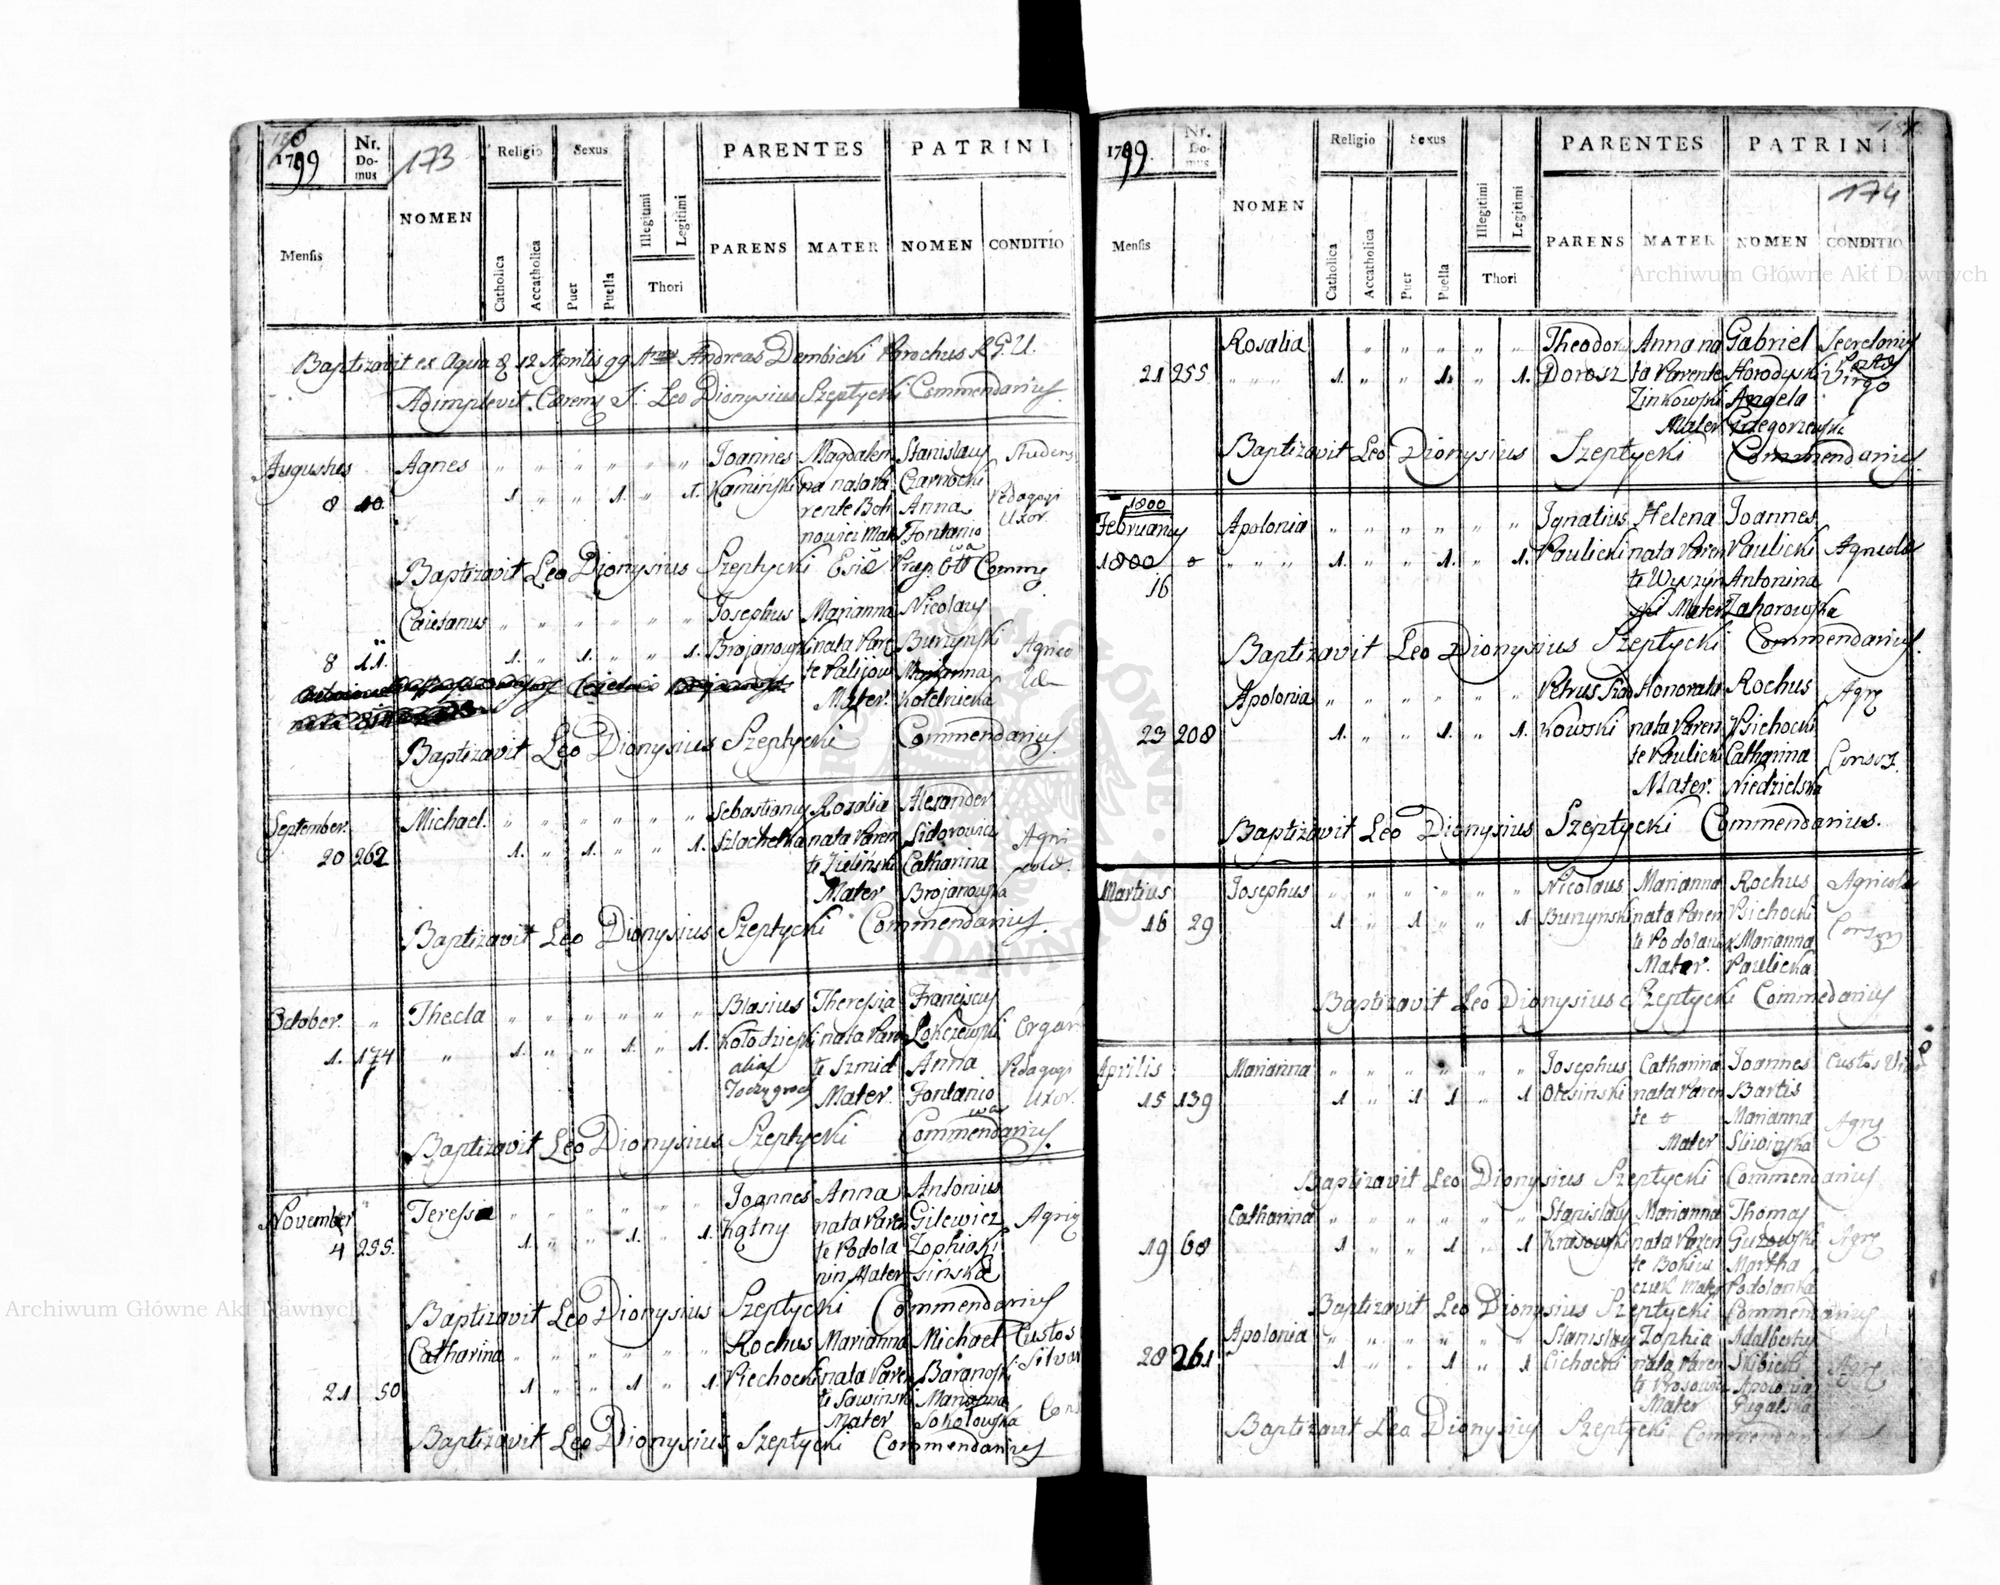 1799
Nr. Domus
173
NOMEN
Religio
Sexus
Illegitimi
Legitimi
PARENTES
PATRINI
Mensis
Catholica
Accatholica
Puer
Puella
Thori
PARENS
MATER
NOMEN
CONDITIO
Baptizavit ex Aqua 8 12 Aprilis 99 Andreas Dembicki Parochus R.G.U.
Adimplevit Cerem Leo Dionysius Szeptycki Commendarius
Augustus Agnes Joannes Magdalen Stanislaus Studens
8 10. 1. 1. 1. Kaminski na nata Pa Czarnocki
rente Boh Anna Pedagogi
nowicz Mat Fontanio Uxor
wa
Baptizavit Leo Dionysius Szeptycki
Caietanus Josephus Marianna Nicolaus
8 11. 1. 1. 1. Brojanowski nata Pare Burzynski Agrico
te Palijow Marianna
Mater. Kotelnicka
Baptizavit Leo Dionysius Szeptycki Commendarius
September Michael. Sebastianus Rozalia Alexander
20 262 1. 1. 1. Szlachetka nata Paren Sidorowicz Agri
te Zielinski Catharina colae.
Mater Brojanowska
Baptizavit Leo Dionysius Szeptycki Commendarius.
October. Thecla Blasius Theressia Franciscus
1. 174 1. 1. 1. Kołodziejski nata Paren Lokczewski Organ
alias te Szmid Anna Pedagogi
Toczygroch Mater. Fontanio Uxor.
wa
Baptizavit Leo Dionysius Szeptycki Commendarius.
November Teressia Joannes Anna Antonius
4 255. 1. 1. 1. Kątny nata Paren Gilewicz
te Podola Zophia
nin Mater sińska
Baptizavit Leo Dionysius Szeptycki Commendarius
Catharina Rochus Marianna Michael Custos
21 50 1 1 1. Piechocki nata Paren Baranoski Silvar
te Sawinski Marianna
Mater Sokołowska Cons
Baptizavit Leo Dionysius Szeptycki Commendarius
1799.
Nr. Domus
174
NOMEN
Religio
Sexus
Illegitimi
Legitimi
PARENTES
PATRINI
Mensis
Catholica
Accatholica
Puer
Puella
Thori
PARENS
MATER
NOMEN
CONDITIO
Rosalia Theodor Anna na Gabriel Secretarius
21 255 1. 1. 1. Dorosz ta Parente Horodyski
Zinkowski Angela Virgo
Mater
Baptizavit Leo Dionysius Szeptycki Commendarius.
1800
Februarius Apolonia Ignatius Helena Joannes
1800 1. 1. 1. Paulicki nata Paren Paulicki Agricolae
16 te Wyszyn Antonina
ski Mater Zahorowska
Baptizavit Leo Dionysius Szeptycki Commendarius.
Apolonia Petrus Honorata Rochus
23 208 1. 1. 1. kowski nata Paren Psichocki
te Paulicki Catharina
Mater. Niedzielska
Baptizavit Leo Dionysius Szeptycki Commendarius.
Martius Josephus Nicolaus Marianna Rochus Agricolae
16 29 1 1 1 Burzynski nata Paren Psichocki
te Podolan Marianna
Mater. Paulicka
Baptizavit Leo Dionysius Szeptycki Commedarius
Aprilis Marianna Josephus Catharina Joannes Custos
15 139 1 1 1 1 Olesinski nata Paren Bartis
te Marianna
Mater Sliwinska
Baptizavit Leo Dionysius Szeptycki Commendarius
Catharina Stanislaus Marianna Thomas
19 68 1 1 1 Krasowski nata Paren Guzowski
te Bohiw Martha
czuk Mater Podolanka
Baptizavit Leo Dionysius Szeptycki Commendarius
Apolonia Stanislaus Zophia Adalbertus
28 261 1 1 1 Cichocki nata Paren Skibicki
Apolonia
Mater Rigalska
Baptizavit Leo Dionysius Szeptycki Commendarius
Archiwum Główne Akt Dawnych
Archiwum Główne Akt Dawnych